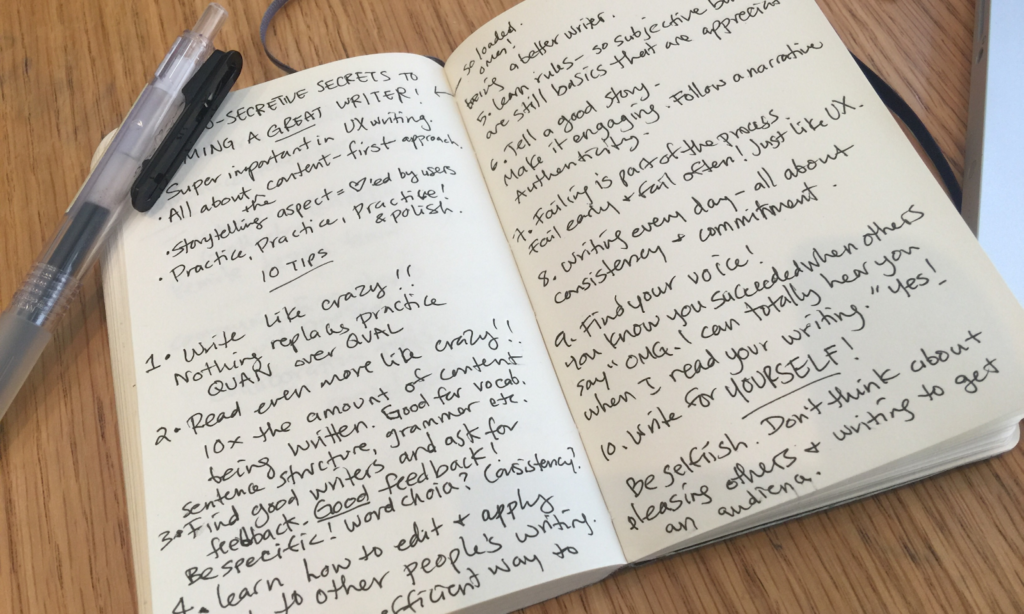 -SECRETIVE SECRETS TO
MING A GREAT WRITER!
Super important in UX writing.
• All about the content-first approach.
• Storytelling aspect = ♡'ed by users
• Practice, Practice, Practice!
& polish.
10 TIPS
1. Write like crazy!!
Nothing replaces practice
QUAN over QUAL
2. Read even more like crazy!!
10x the amount of content
being written. Good for vocab,
sentence structure, grammer etc.
3. Find good writers and ask for
feedback. Good feedback!
Be specific! Word choice? Consistency?
4. Learn how to edit + apply
to other people's writing.
efficient way to
so loaded
being a better writer.
5. learn rules - so subjective but
are still basics that are apprecia
6. Tell a good story -
Make it engaging. Follow a narrative
Authenticity.
7. Failing is part of the process
Fail early + fail often! Just like UX.
8. Writing every day - all about
consistency + commitment.
9. Find your voice!
You know you succeeded when others
say "OMG. I can totally hear you
when I read your writing." Yes!
10. Write for YOURSELF!
Be selfish. Don't think about
pleasing others + writing to get
an audience.